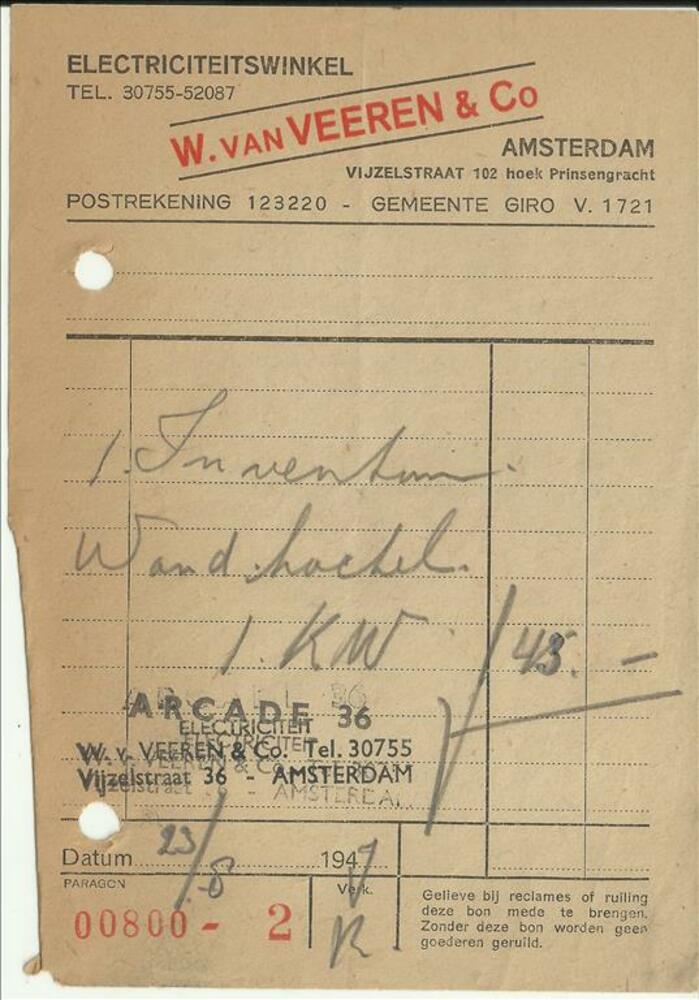 ELECTRICITEITSWINKEL
TEL. 30755-52087
W. VAN VEEREN & Co
AMSTERDAM
VIJZELSTRAAT 102 hoek Prinsengracht
POSTREKENING 123220 - GEMEENTE GIRO V. 1721
1. Inventum.
Wandkachel.
1. KW 45. -
ARCADE 36
ELECTRICITEIT
W. v. VEEREN & Co. Tel. 30755
Vijzelstraat 36 - AMSTERDAM
Datum 23/8 1947
PARAGON
Verk.
00800 - 2
R.
Gelieve bij reclames of ruiling
deze bon mede te brengen.
Zonder deze bon worden geen
goederen geruild.